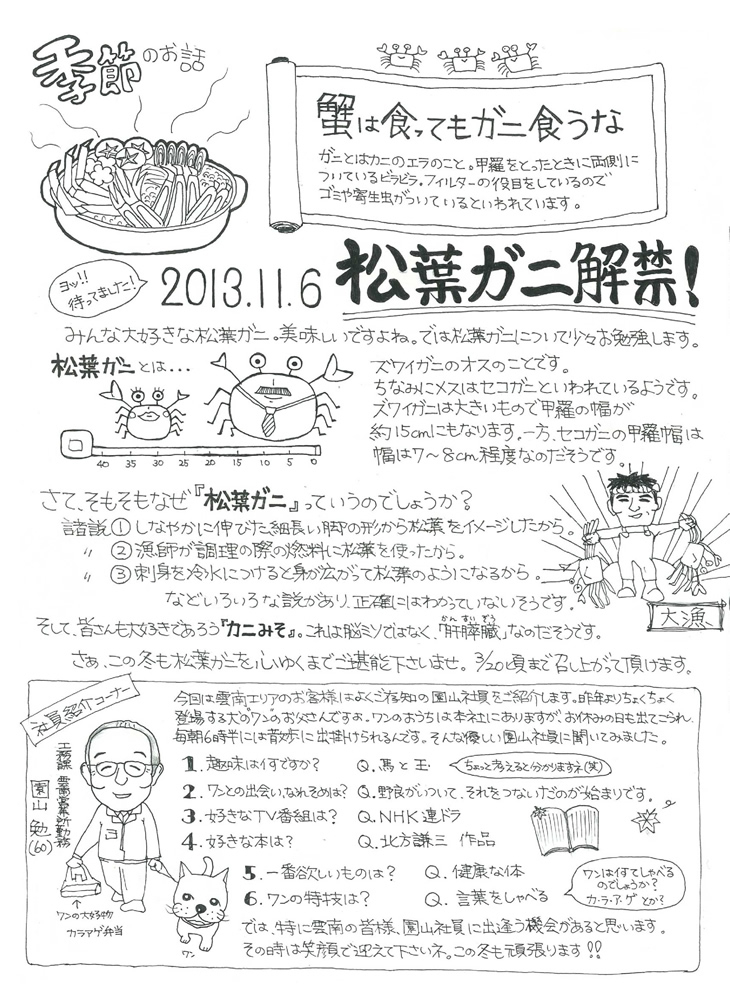 季節のお話
蟹は食ってもガニ食うな
ガニとはカニのエラのこと。甲羅をとったときに両側に
ついているビラビラ。フィルターの役目をしているので
ゴミや寄生虫がついているといわれています。
ヨッ!!
待ってました!
2013.11.6 松葉ガニ解禁!
みんな大好きな松葉ガニ。美味しいですよね。では松葉ガニについて少々お勉強します。
松葉ガニとは...
ズワイガニのオスのことです。
ちなみにメスはセコガニといわれているようです。
ズワイガニは大きいもので甲羅の幅が
約15cmにもなります。一方、セコガニの甲羅幅は
幅は7〜8cm程度なのだそうです。
40 35 30 25 20 15 10 5 0
さて、そもそもなぜ『松葉ガニ』っていうのでしょうか?
諸説①しなやかに伸びた細長い脚の形から松葉をイメージしたから。
〃 ②漁師が調理の際の燃料に松葉を使ったから。
〃 ③刺身を冷水につけると身が広がって松葉のようになるから。
などいろいろな説があり、正確にはわかっていないそうです。
大漁
そして、皆さんも大好きであろう『カニみそ』。これは脳ミソではなく、「肝膵臓」なのだそうです。
かんすいぞう
さぁ、この冬も松葉ガニを心ゆくまでご堪能下さいませ。3/20頃まで召し上がって頂けます。
社員紹介コーナー
今回は雲南エリアのお客様はよくご存知の園山社員をご紹介します。昨年よりちょくちょく
登場する犬の"ワン"のお父さんですよ。ワンのおうちは本社にありますが、お休みの日も出てこられ、
毎朝6時半には散歩に出掛けられるんです。そんな優しい園山社員に聞いてみました。
工務課 雲南営業所勤務
園山 勉(60)
1.趣味は何ですか? Q.馬と玉 ちょっと考えると分かりますネ(笑)
2.ワンとの出会い、なれそめは? Q.野良がついて、それをつないだのが始まりです。
3.好きなTV番組は? Q.NHK連ドラ
4.好きな本は? Q.北方謙三 作品
5.一番欲しいものは? Q.健康な体
6.ワンの特技は? Q.言葉をしゃべる
ワンは何てしゃべる
のでしょうか?
カ・ラ・ア・ゲとか?
↑
ワンの大好物
カラアゲ弁当
ワン
では、特に雲南の皆様、園山社員に出逢う機会があると思います。
その時は笑顔で迎えて下さいネ。この冬も頑張ります!!